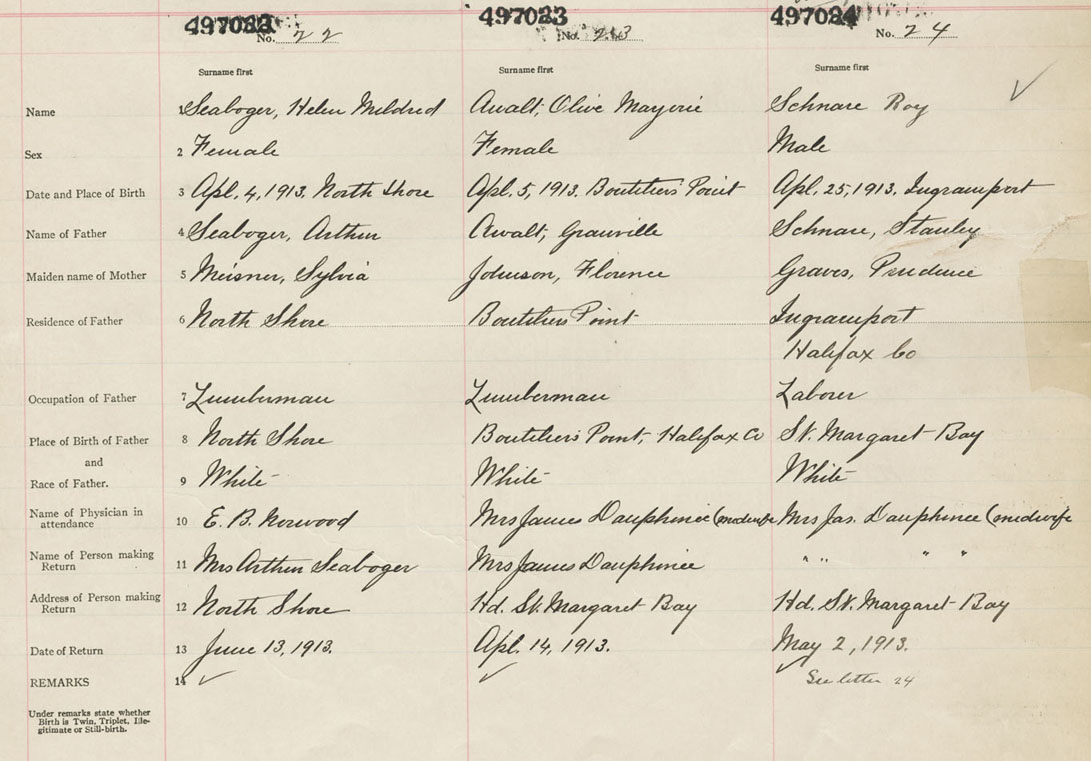 497022 497023 497024
No. 22 No. 23 No. 24
Surname first Surname first Surname first
Name 1 Seaboyer, Helen Mildred Awalt, Olive Marjorie Schnare Roy
Sex 2 Female Female Male
Date and Place of Birth 3 Apl. 4, 1913. North Shore Apl. 5, 1913. Boutiliers Point Apl. 25, 1913. Ingramport
Name of Father 4 Seaboyer, Arthur Awalt, Granville Schnare, Stanley
Maiden name of Mother 5 Meisner, Sylvia Johnson, Florence Graves, Prudence
Residence of Father 6 North Shore Boutiliers Point Ingramport
Halifax Co
Occupation of Father 7 Lumberman Lumberman Laborer
Place of Birth of Father 8 North Shore Boutiliers Point, Halifax Co St. Margaret Bay
and
Race of Father. 9 White White White
Name of Physician in attendance 10 E. B. Norwood Mrs James Dauphinee (midwife Mrs Jas. Dauphinee (midwife
Name of Person making Return 11 Mrs Arthur Seaboyer Mrs James Dauphinee " " " "
Address of Person making Return 12 North Shore Hd. St. Margaret Bay Hd. St. Margaret Bay
Date of Return 13 June 13, 1913. Apl. 14, 1913. May 2, 1913.
REMARKS 14 See letter 24
Under remarks state whether
Birth is Twin, Triplet, Ille-
gitimate or Still-birth.